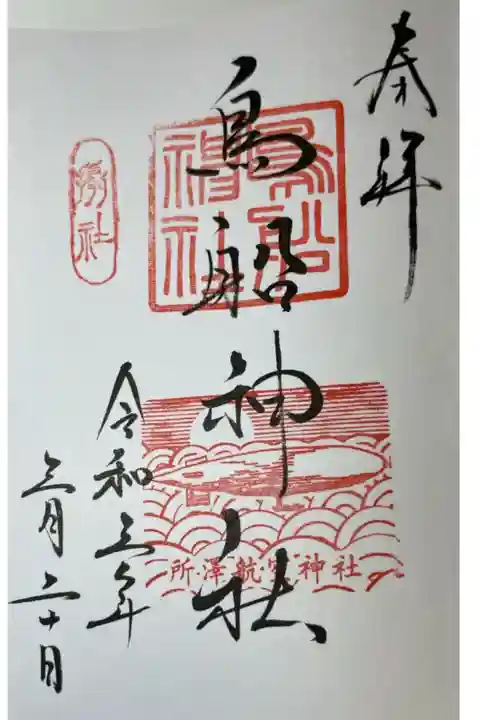 奉拝
鳥船
神社
鳥船神社
所澤航空神社
令和三年
三月二十日